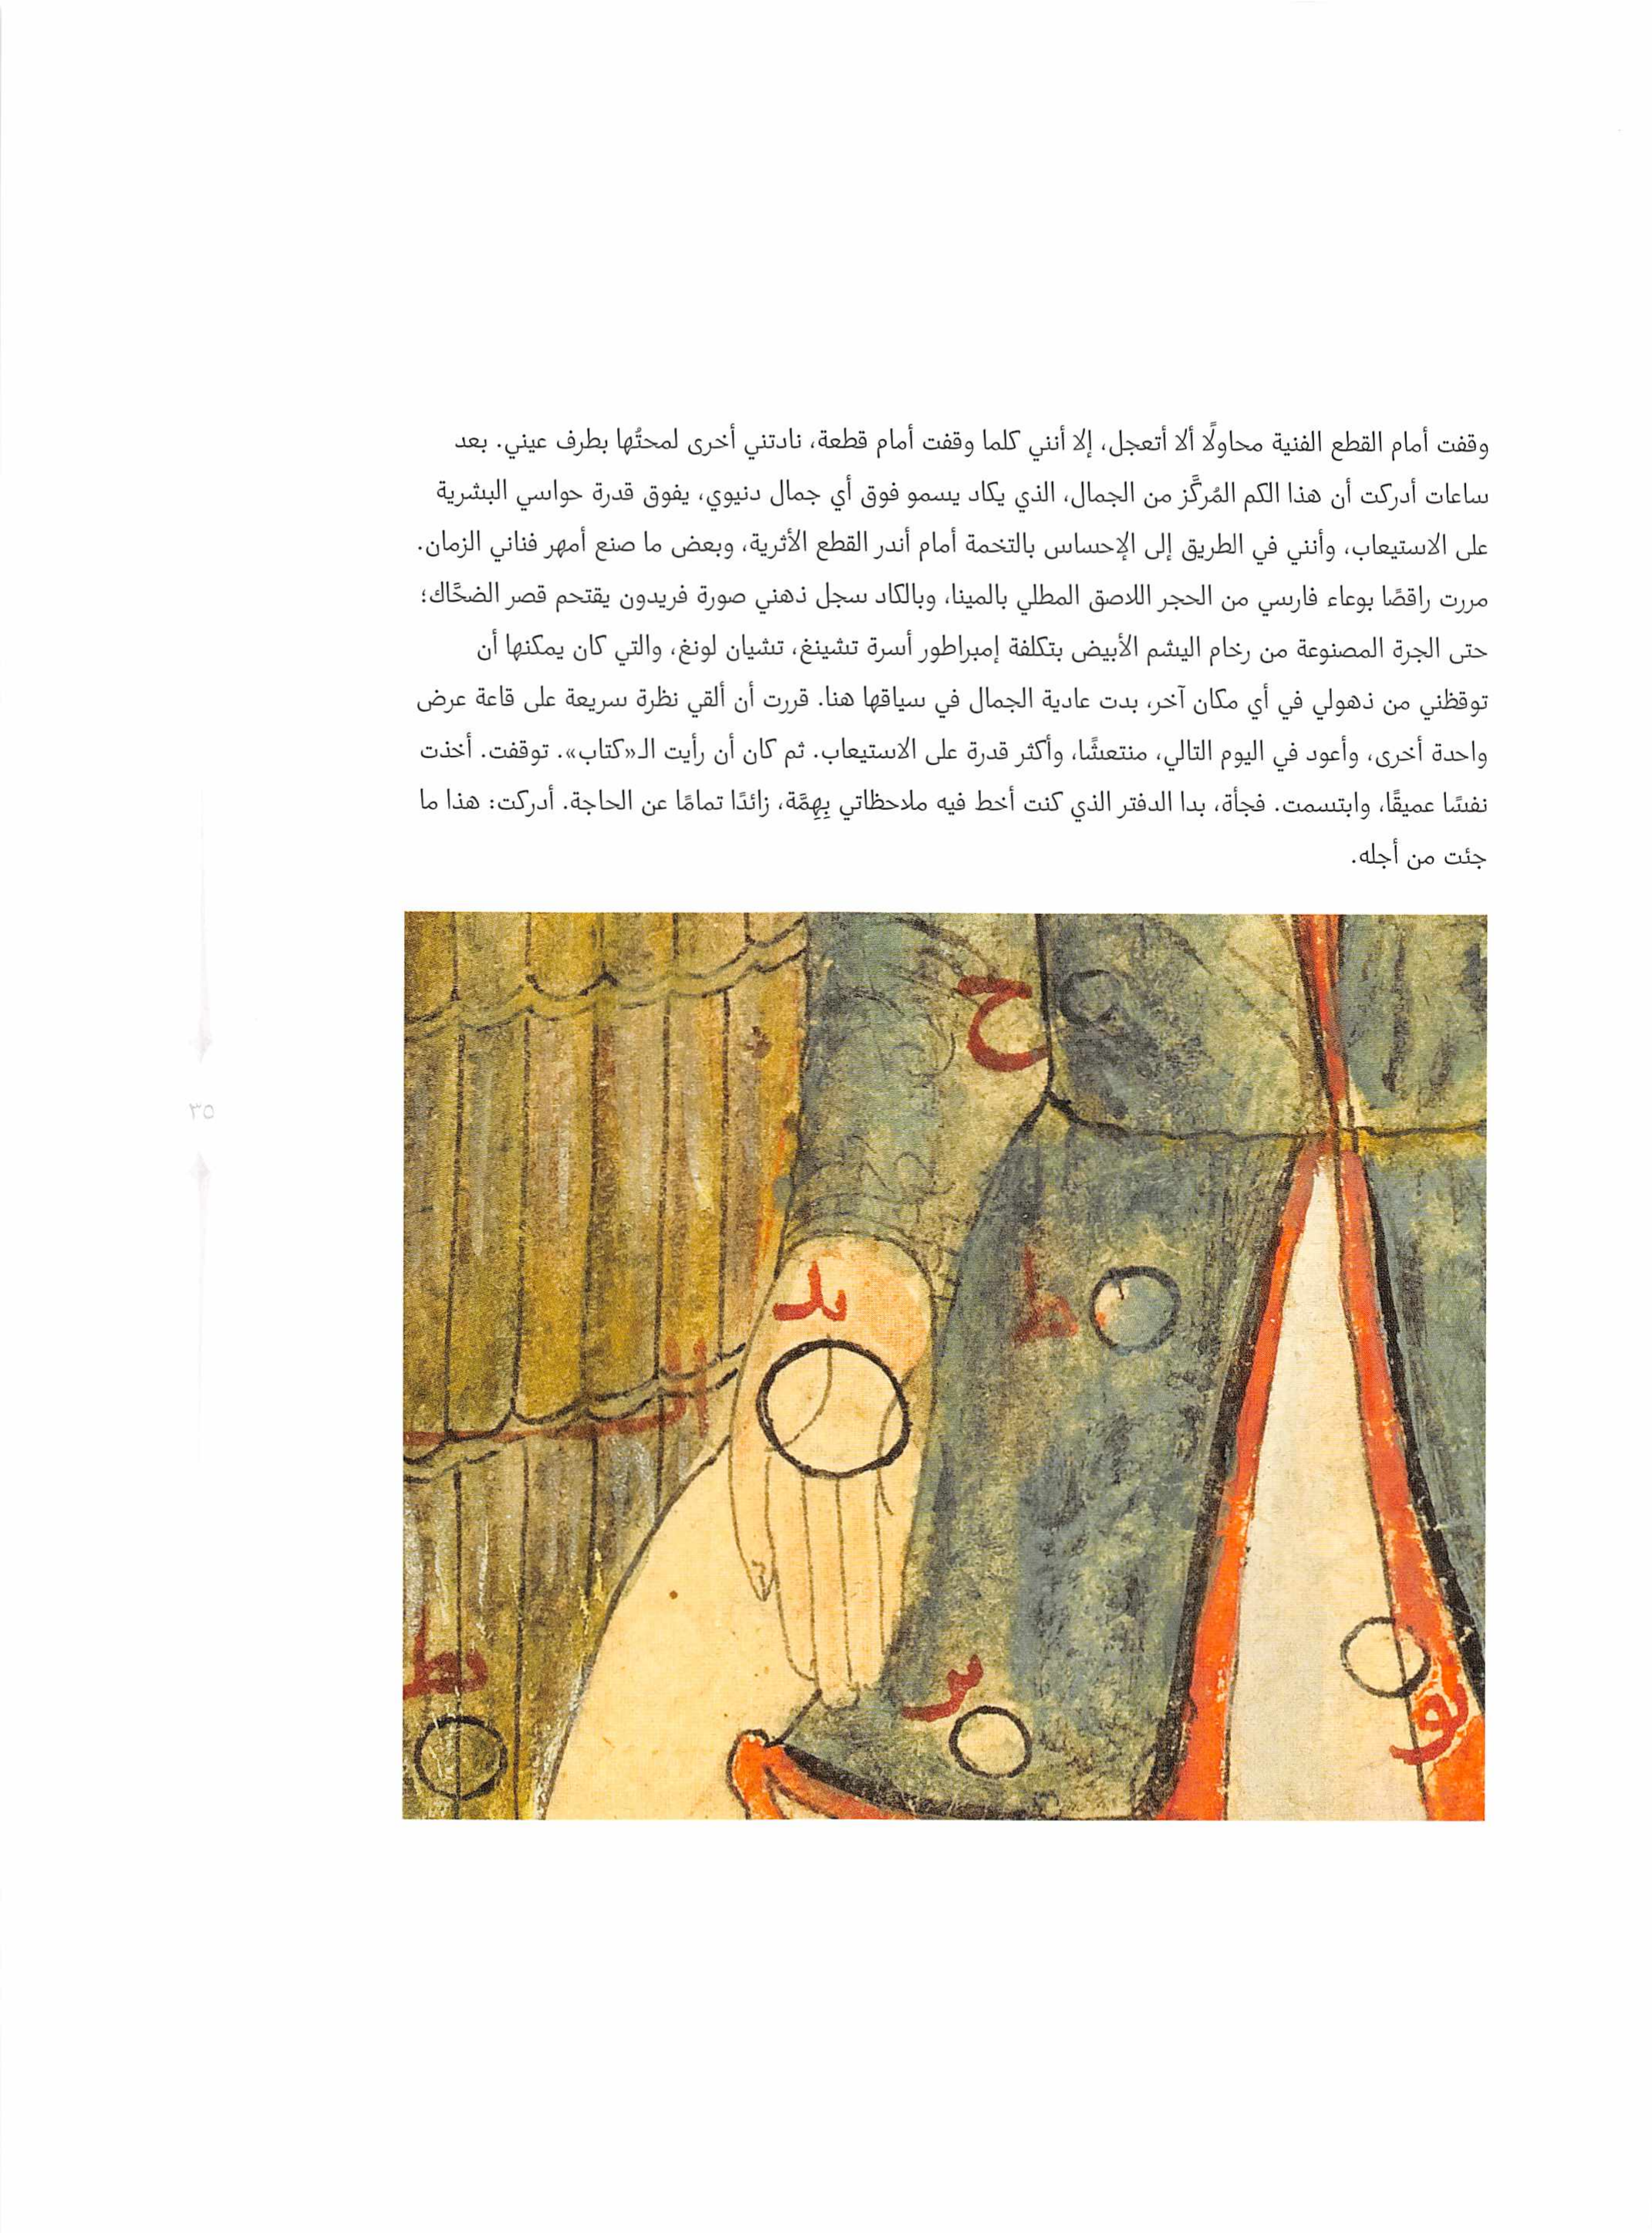 وقفت أمام القطع الفنية محاولًا ألا أتعجل، إلا أنني كلما وقفت أمام قطعة، نادتني أخرى لمحتُها بطرف عيني. بعد
ساعات أدركت أن هذا الكم المُركَّز من الجمال، الذي يكاد يسمو فوق أي جمال دنيوي، يفوق قدرة حواسي البشرية
على الاستيعاب، وأنني في الطريق إلى الإحساس بالتخمة أمام أندر القطع الأثرية، وبعض ما صنع أمهر فناني الزمان.
مررت راقصًا بوعاء فارسي من الحجر اللاصق المطلي بالمينا، وبالكاد سجل ذهني صورة فريدون يقتحم قصر الضحَّاك؛
حتى الجرة المصنوعة من رخام اليشم الأبيض بتكلفة إمبراطور أسرة تشينغ، تشيان لونغ، والتي كان يمكنها أن
توقظني من ذهولي في أي مكان آخر، بدت عادية الجمال في سياقها هنا. قررت أن ألقي نظرة سريعة على قاعة عرض
واحدة أخرى، وأعود في اليوم التالي، منتعشًا، وأكثر قدرة على الاستيعاب. ثم كان أن رأيت الـ«كتاب». توقفت. أخذت
نفسًا عميقًا، وابتسمت. فجأة، بدا الدفتر الذي كنت أخط فيه ملاحظاتي بِهِمَّة، زائدًا تمامًا عن الحاجة. أدركت: هذا ما
جئت من أجله.
ح
ط
٣٥